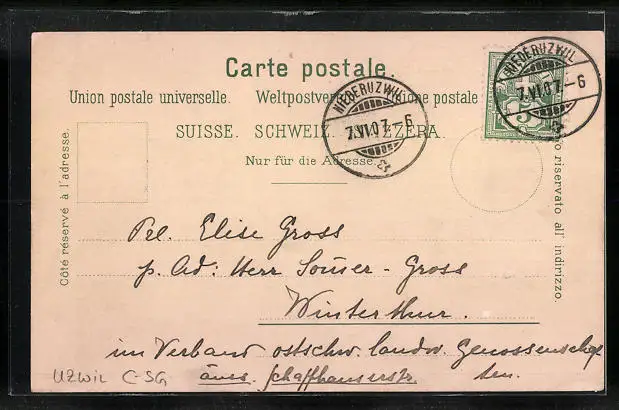 Carte postale.
Union postale universelle. Weltpostver ione postale
SUISSE. SCHWEIZ. SVIZZERA.
Nur für die Adresse.
Côté réservé à l'adresse.
riservato all' indirizzo.
NIEDERUZWIL
7.VI.07.-6
NIEDERUZWIL
7.VI.07.-6
5
Elise Gross
p. Ad: Herr Gross
Winterthur.
im Verband ostschw. landw. Genossenschaf
ten.
Schaffhauserstr.
Uzwil C-SG